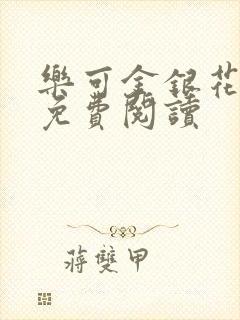 樂可金銀花
免費閱讀
蔣雙甲